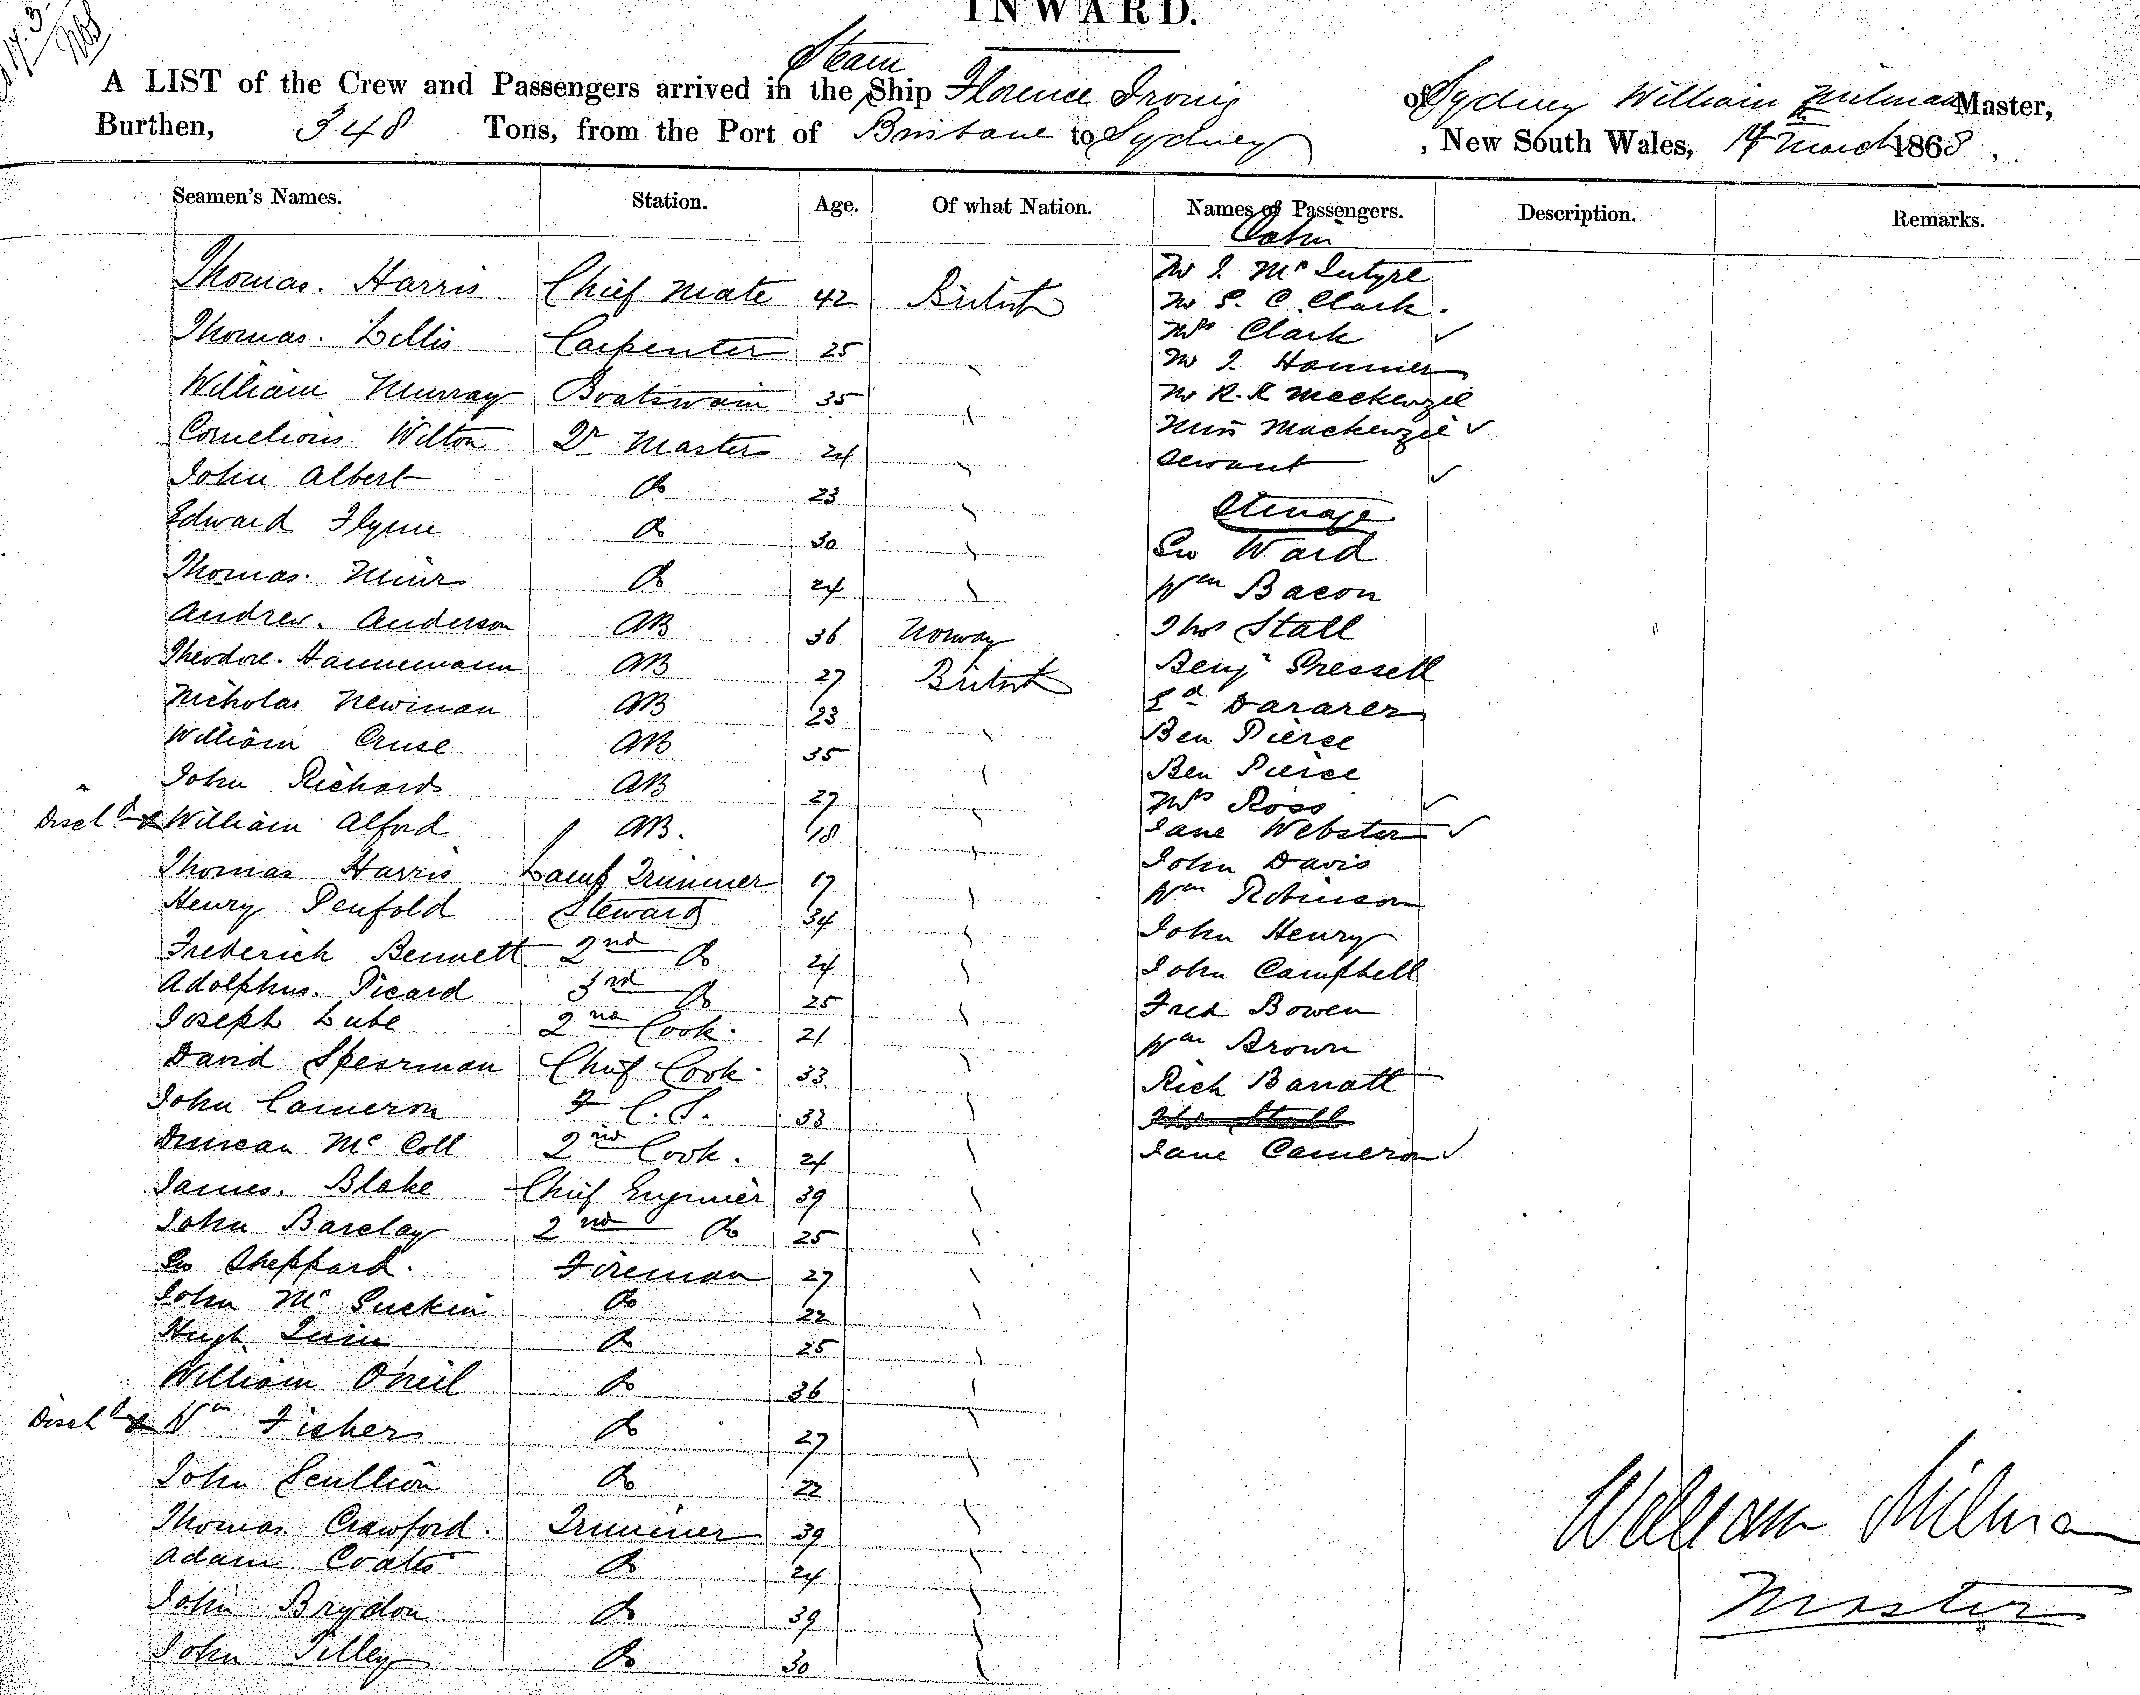 INWARD.
Steam
A LIST of the Crew and Passengers arrived in the Ship Florence Irving of Sydney William Milman Master,
Burthen, 348 Tons, from the Port of Brisbane to Sydney, New South Wales, 17 March 1868.
Seamen's Names. Station. Age. Of what Nation. Names of Passengers. Description. Remarks.
Cabin
Thomas. Harris Chief Mate 42 British Mr J. McIntyre
Mr S. C. Clark.
Thomas. Lillis Carpenter 25 " Mrs Clark ✓
Mr J. Hammer
William Murray Boatswain 35 " Mr R. R Mackenzie
Cornelious Wilton Qr Master 24 " Miss Mackenzie ✓
John Albert do 23 " Servant ✓
Edward Flynn do 30 " Steerage
Thomas. Muir do 24 " Geo Ward
Wm Bacon
Andrew. Anderson AB 36 Norway Thos Stall
Theodore. Hannemann AB 27 British Benjn Pressell
Nicholas Newman AB 23 " Ed Dararer
William Cruse AB 35 " Ben Pierce
John Richards AB 27 " Ben Pierce
Mrs Ross ✓
Dischd William Alford AB. 18 " Jane Webster ✓
Thomas Harris Lamp Trimmer 17 " John Davis
Henry Penfold Steward 34 " Wm Robinson
Frederick Bennett 2nd do 24 " John Henry
Adolphus. Picard 3rd do 25 " John Campbell
Joseph Lube 2nd Cook. 21 " Fred Bowen
David Spearman Chief Cook. 33 " Wm Brown
John Cameron F. C. S. 33 " Rich Barratt
Thos Stall
Duncan McColl 2nd Cook. 21 " Jane Cameron ✓
James. Blake Chief Engineer 39 "
John Barclay 2nd do 25 "
Geo Sheppard. Fireman 27 "
John Mc do 22 "
Hugh Quin do 25 "
William O'Neil do 36 "
Dischd Wm Fisher do 27 "
John Scullion do 22 "
Thomas Crawford. Trimmer 39 "
Adam Coates do 24 "
John Brydon do 39 "
John Tilley do 30 "
William Milman
Master